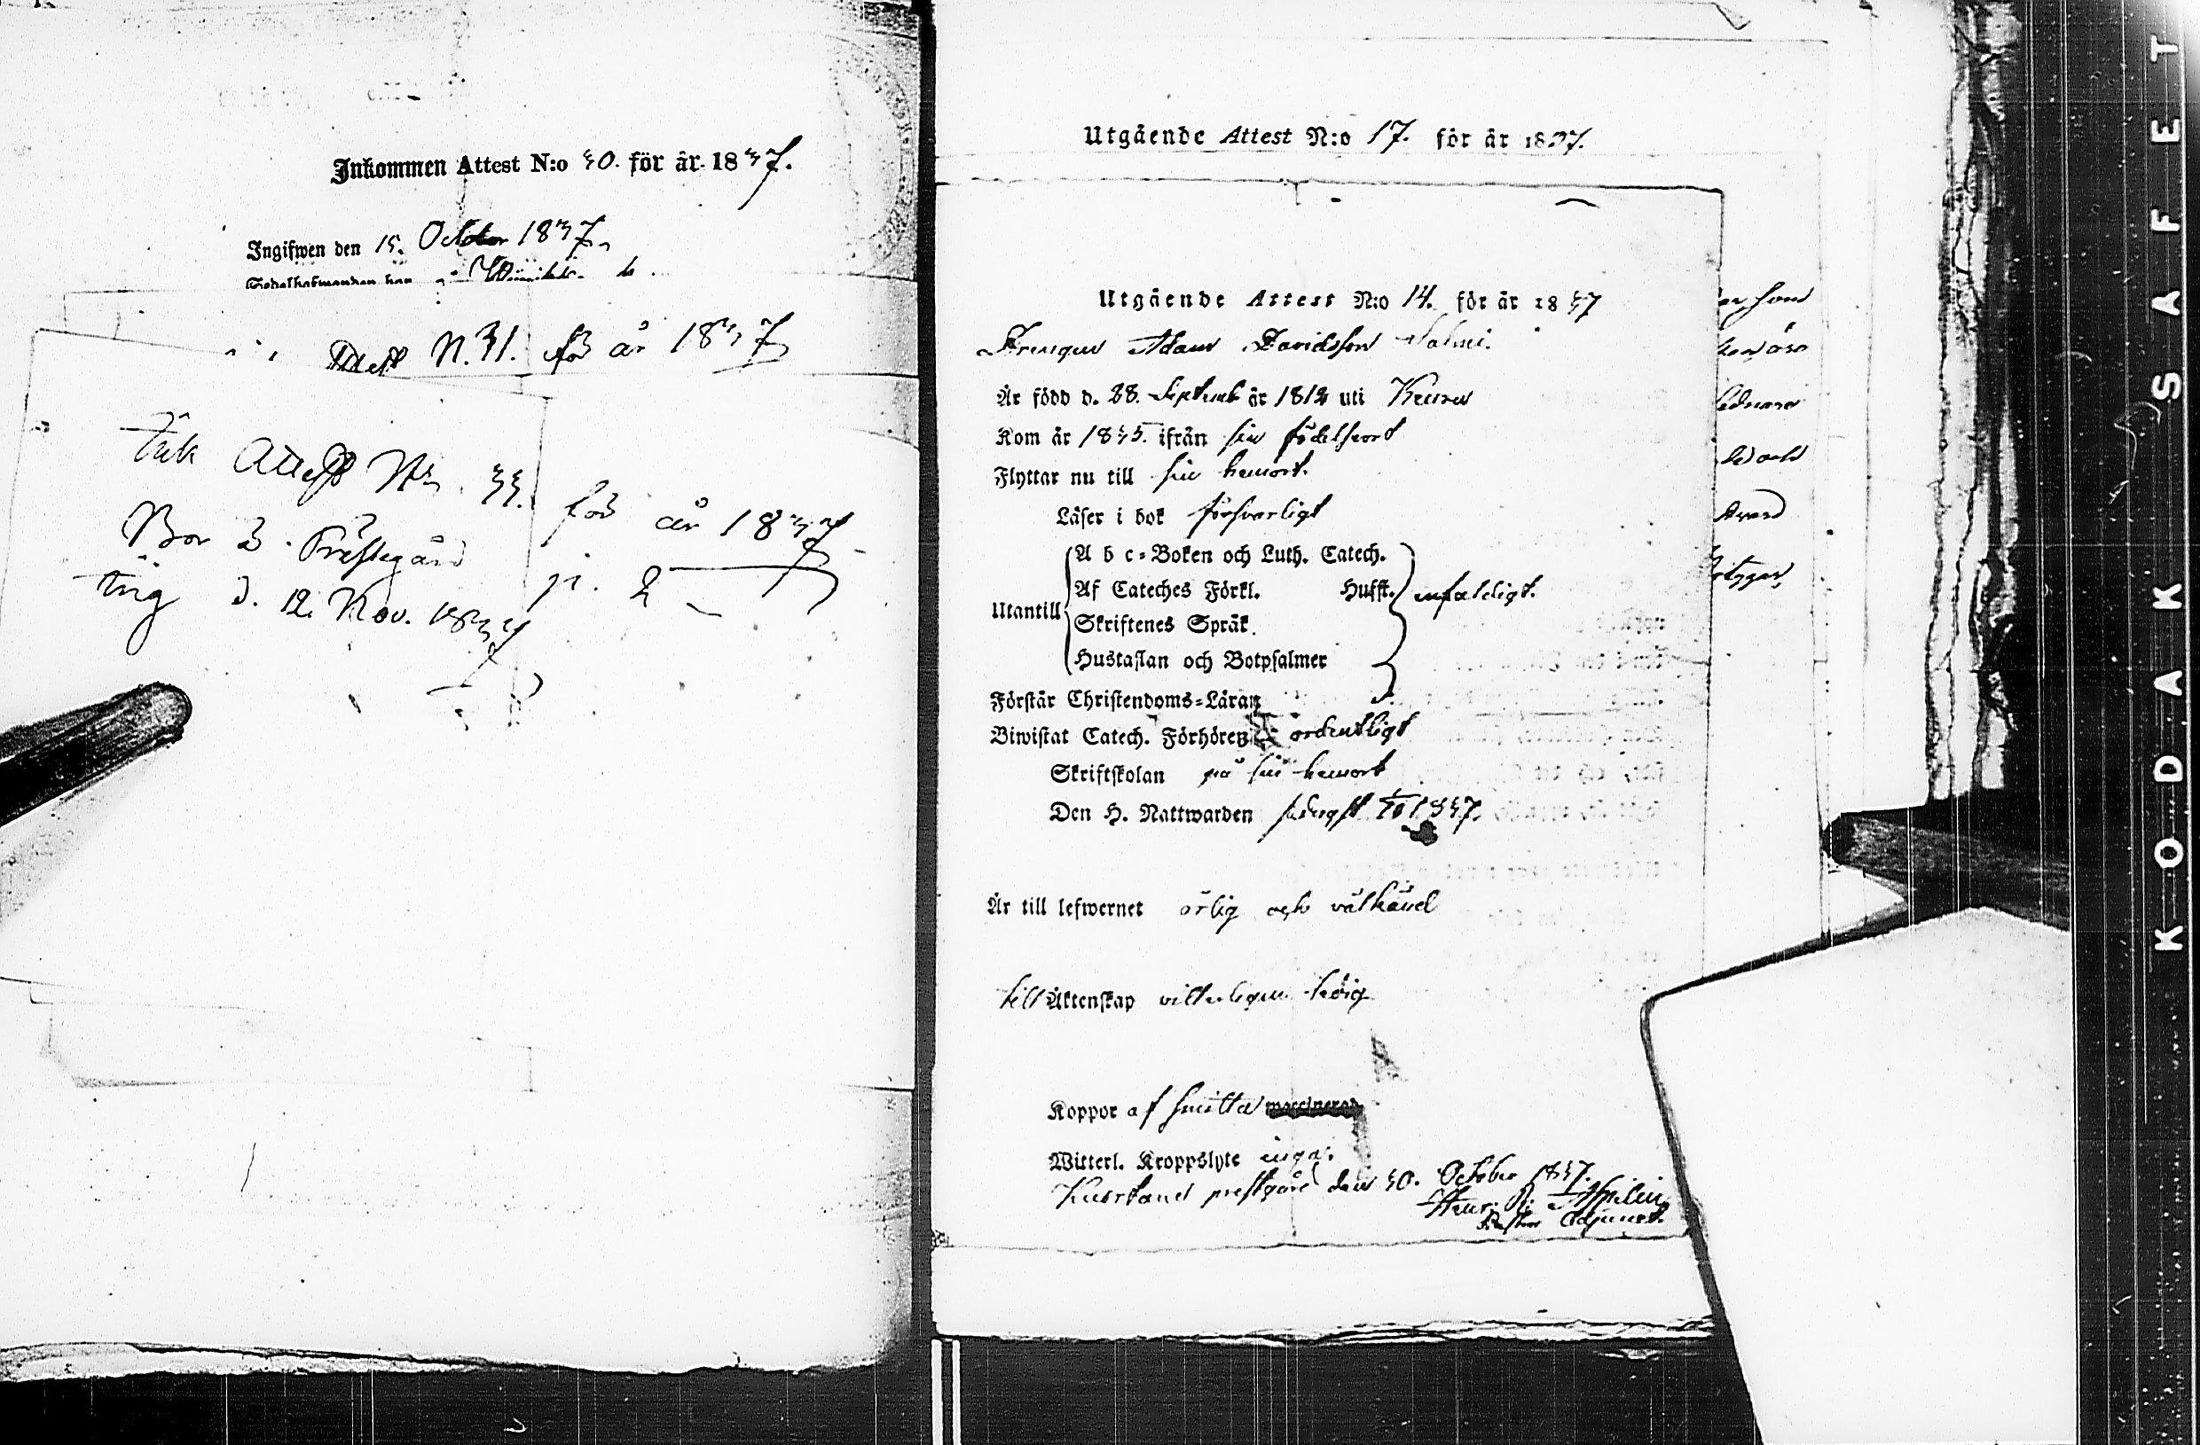 Inkommen Attest N:o 30. för år 1837.
Ingifwen den 15. October 1837.
Attest N. 31. för år 1837
Attest No 33. för år 1837
Bor Prästegård p. 2
d. 12. Nov. 1837
Utgående Attest N:o 17. för år 1837.
Utgående Attest N:o 14. för år 1837
Drengen Adam Davidsson Salmi.
Är född d. 28. Septemb år 1812 uti
Kom år 1835. ifrån sin födelseort
Flyttar nu till sin hemort.
Läser i bok försvarligt
Utantill
A b c=Boken och Luth. Catech.
Af Cateches Förkl. Hufft. enfaldigt.
Skriftenes Språk.
Hustaflan och Botpsalmer
Förstår Christendoms=Läran
Biwistat Catech. Förhören ordentligt
Skriftskolan på sin hemort
Den H. Nattwarden 1837.
Är till lefwernet ärlig och välkänd
till Äktenskap vitterligen ledig
Koppor af smitta waccinerad
Witterl. Kroppslyte inga.
prestgård den 30. October 1837.
Pastors Adjunct.
KODAK SAFET